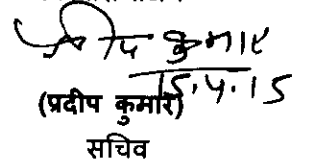 प्रदीप कुमार
15.4.15
(प्रदीप कुमार)
सचिव